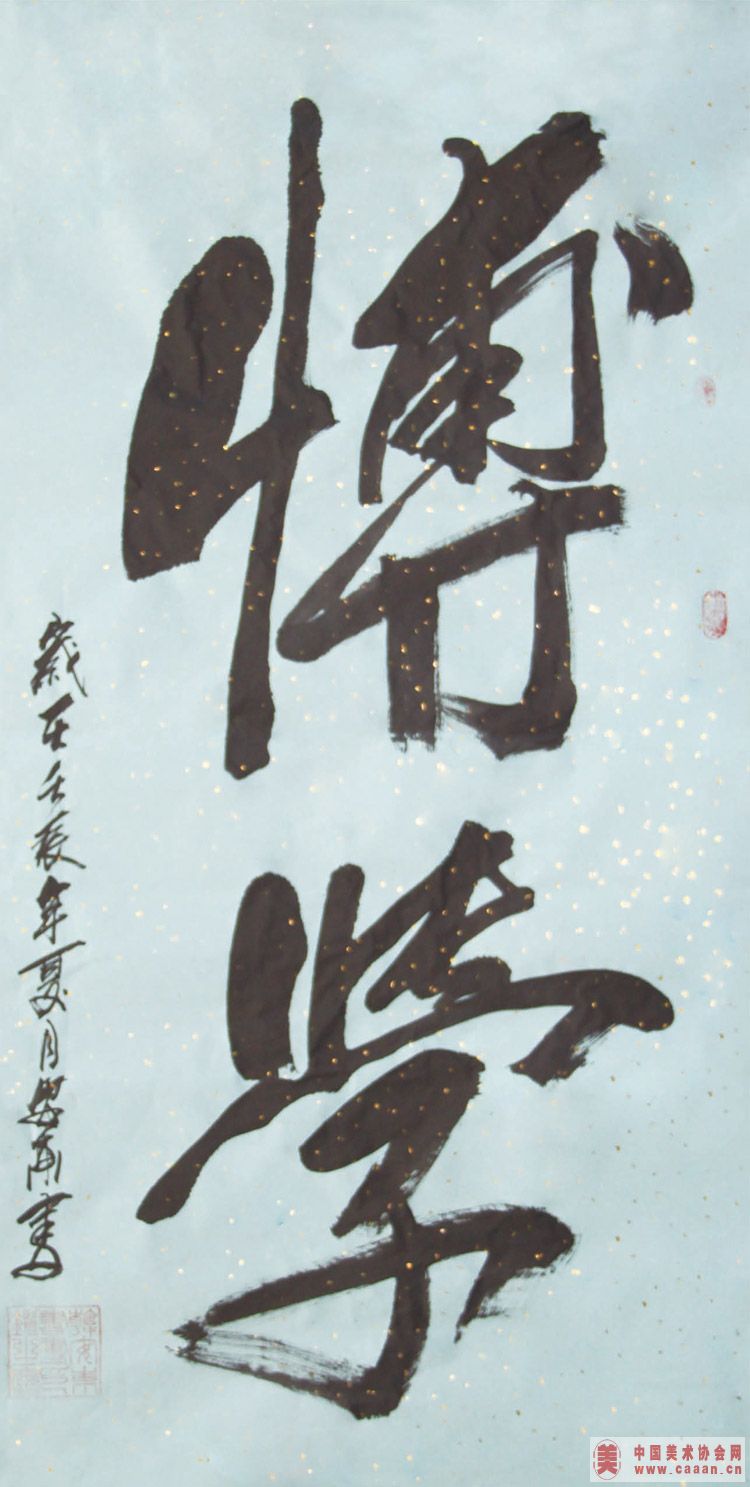 博学
歲在壬辰年夏月
中国美术协会网
www.caaan.cn